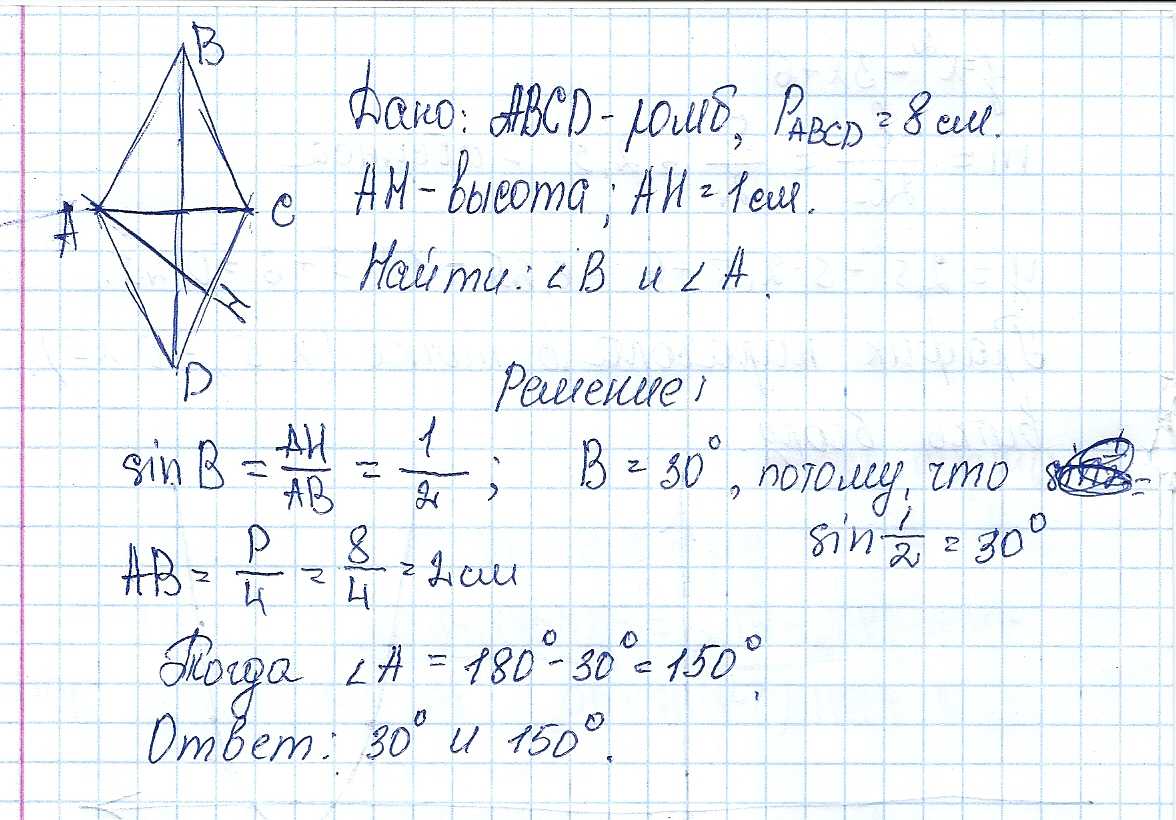 B
A
C
H
D
Дано: ABCD - ромб, P_ABCD = 8 см.
AH - высота; AH = 1 см.
Найти: ∠B и ∠A.
Решение:
sin B = AH/AB = 1/2 ; B = 30°, потому, что
sin 1/2 = 30°
AB = P/4 = 8/4 = 2 см
Тогда ∠A = 180° - 30° = 150°.
Ответ: 30° и 150°.